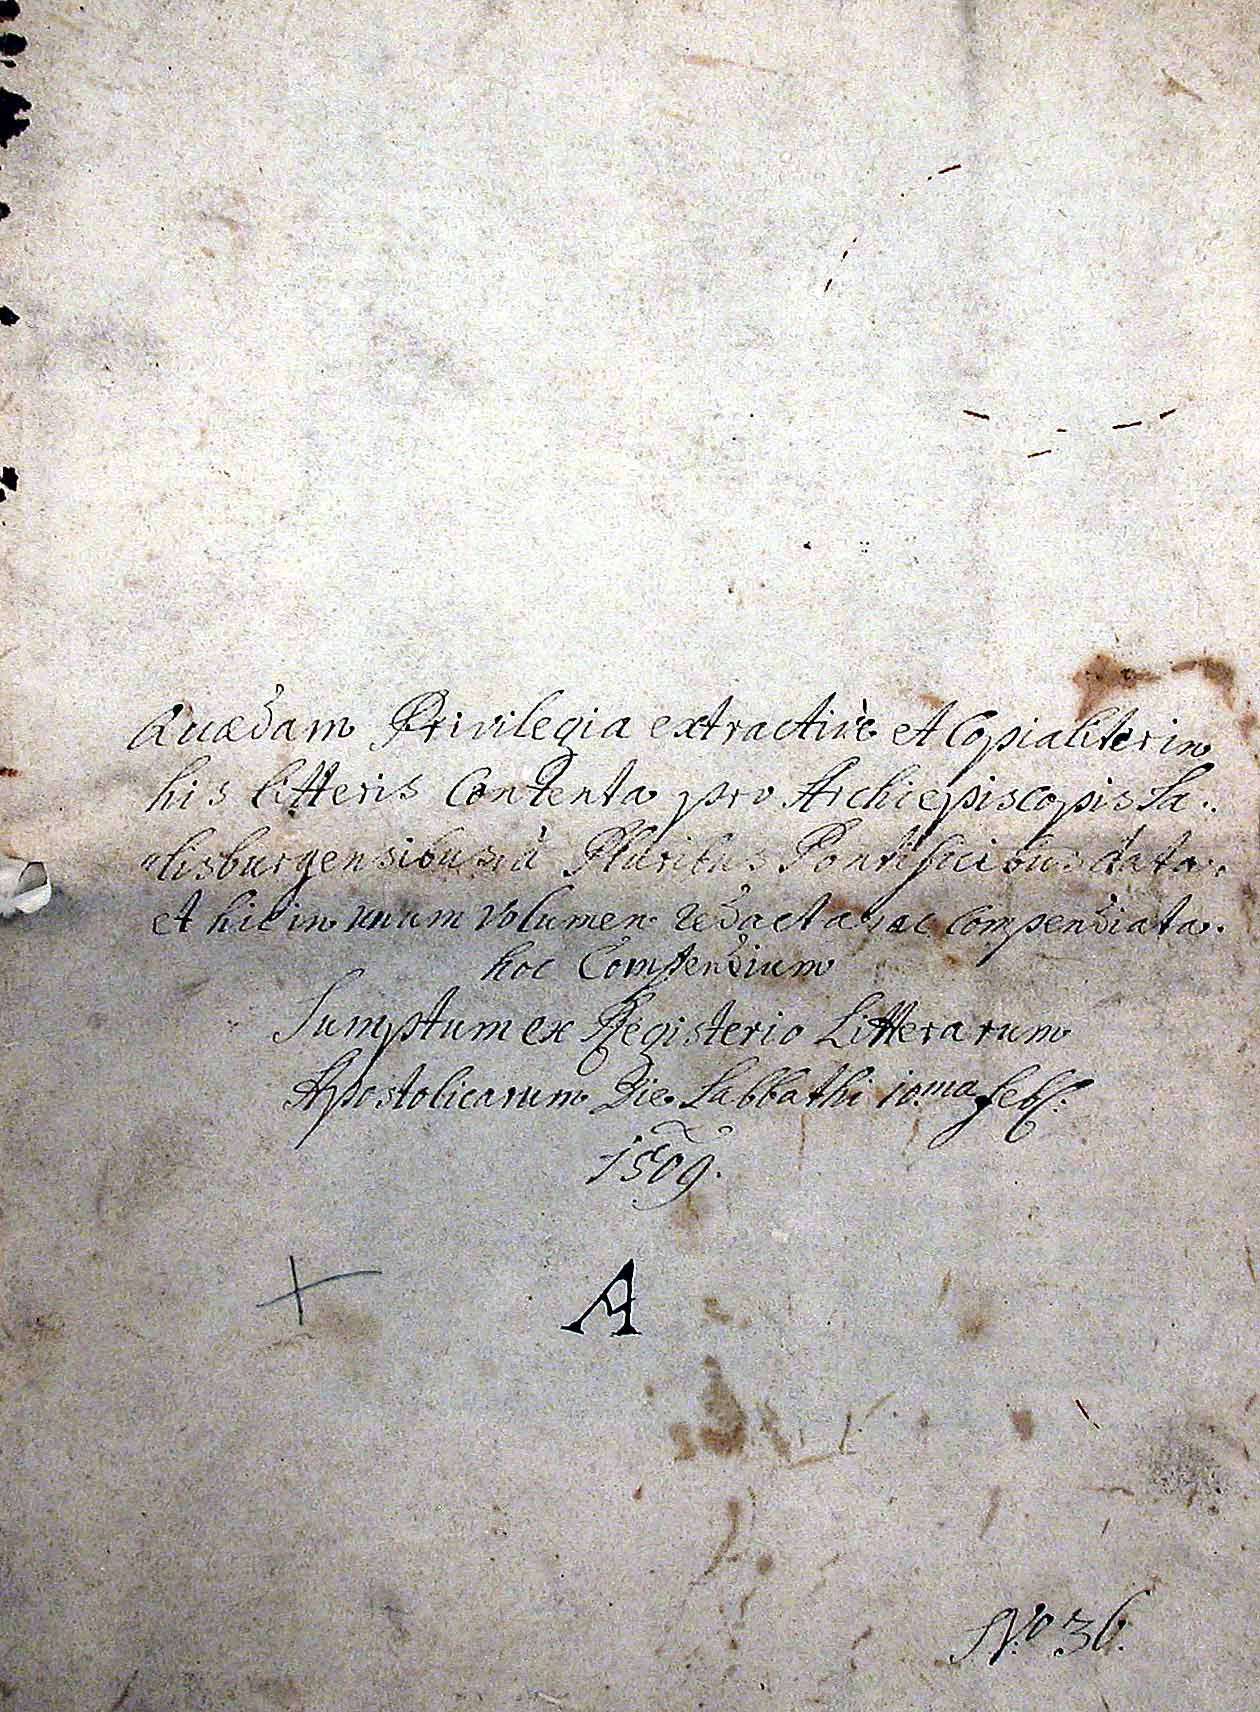 Quædam Privilegia extractivè et Copialiter in
his litteris Contenta pro Archiepiscopis Sa..
lisburgensibus à Pluribus Pontificibus data.
et hic in unum Volumen redacta, ac Compendiata.
hoc Compendium
Sumptum ex Registerio Litterarum
Apostolicarum Die Sabbathi 10.ma feb:
1509.
+ A
N.o 36.